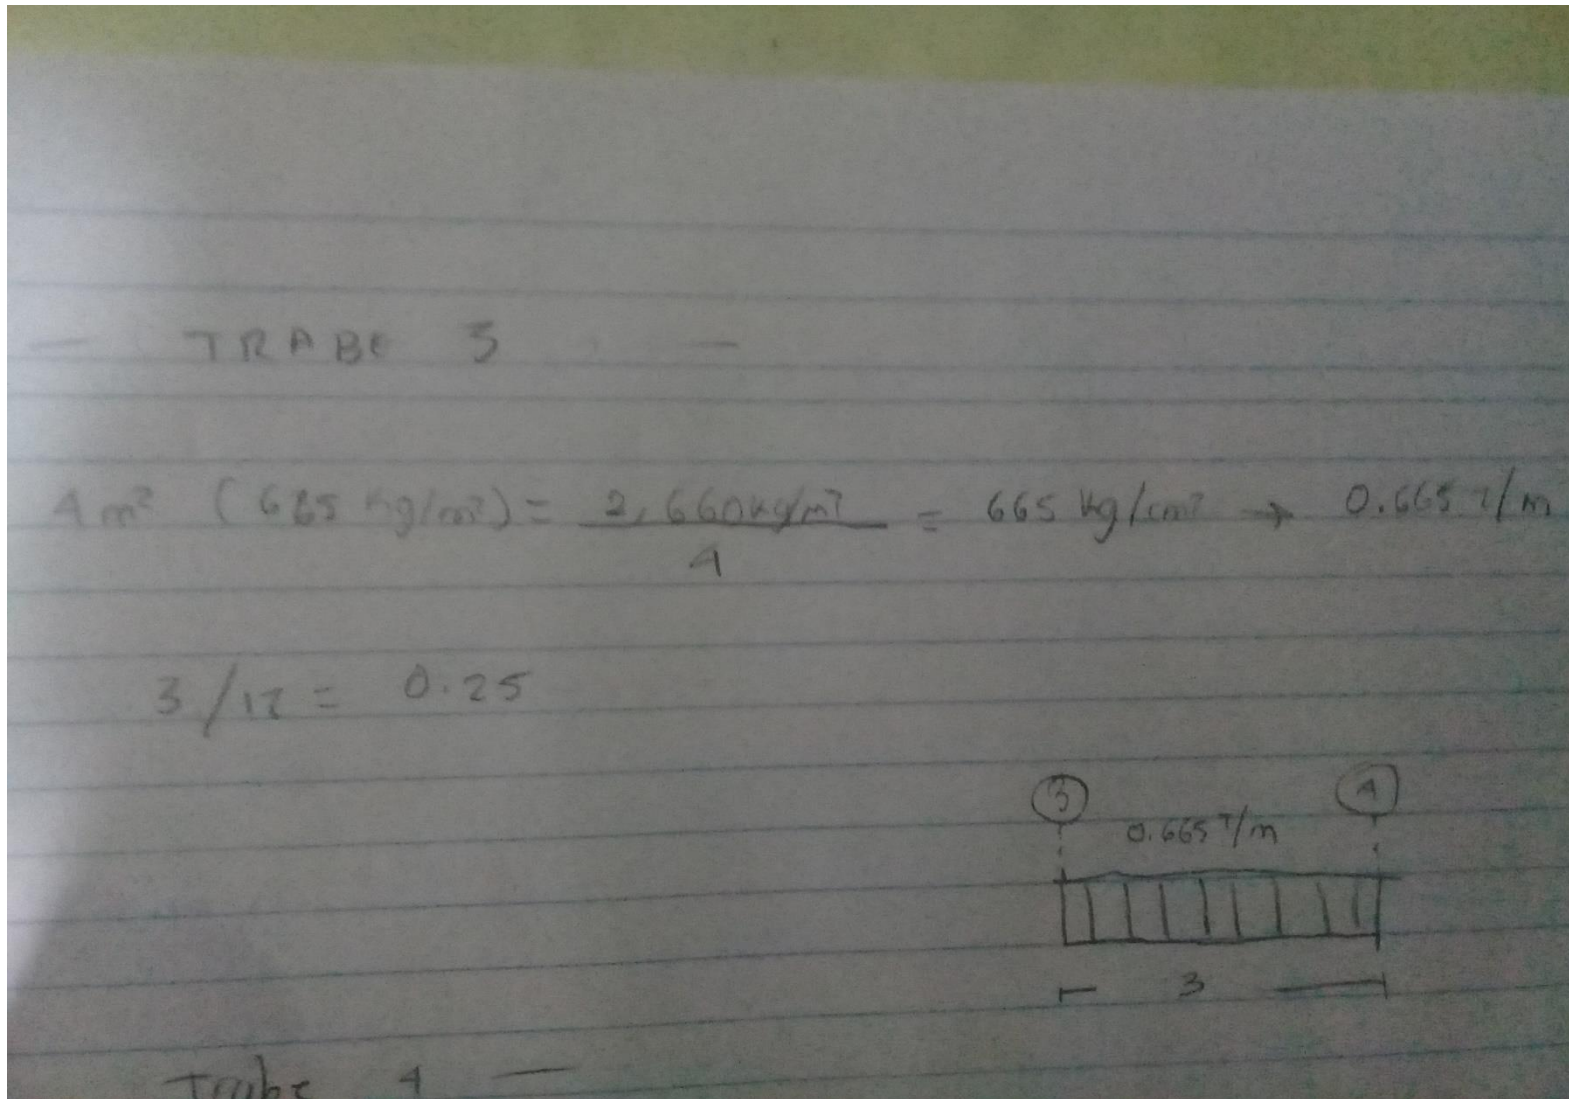 — TRABE 3 —
4 m² (665 kg/m²) = 2,660 kg/m² / 4 = 665 kg/cm² → 0.665 T/m
3/12 = 0.25
3 4
0.665 T/m
3
Trabe 4 —